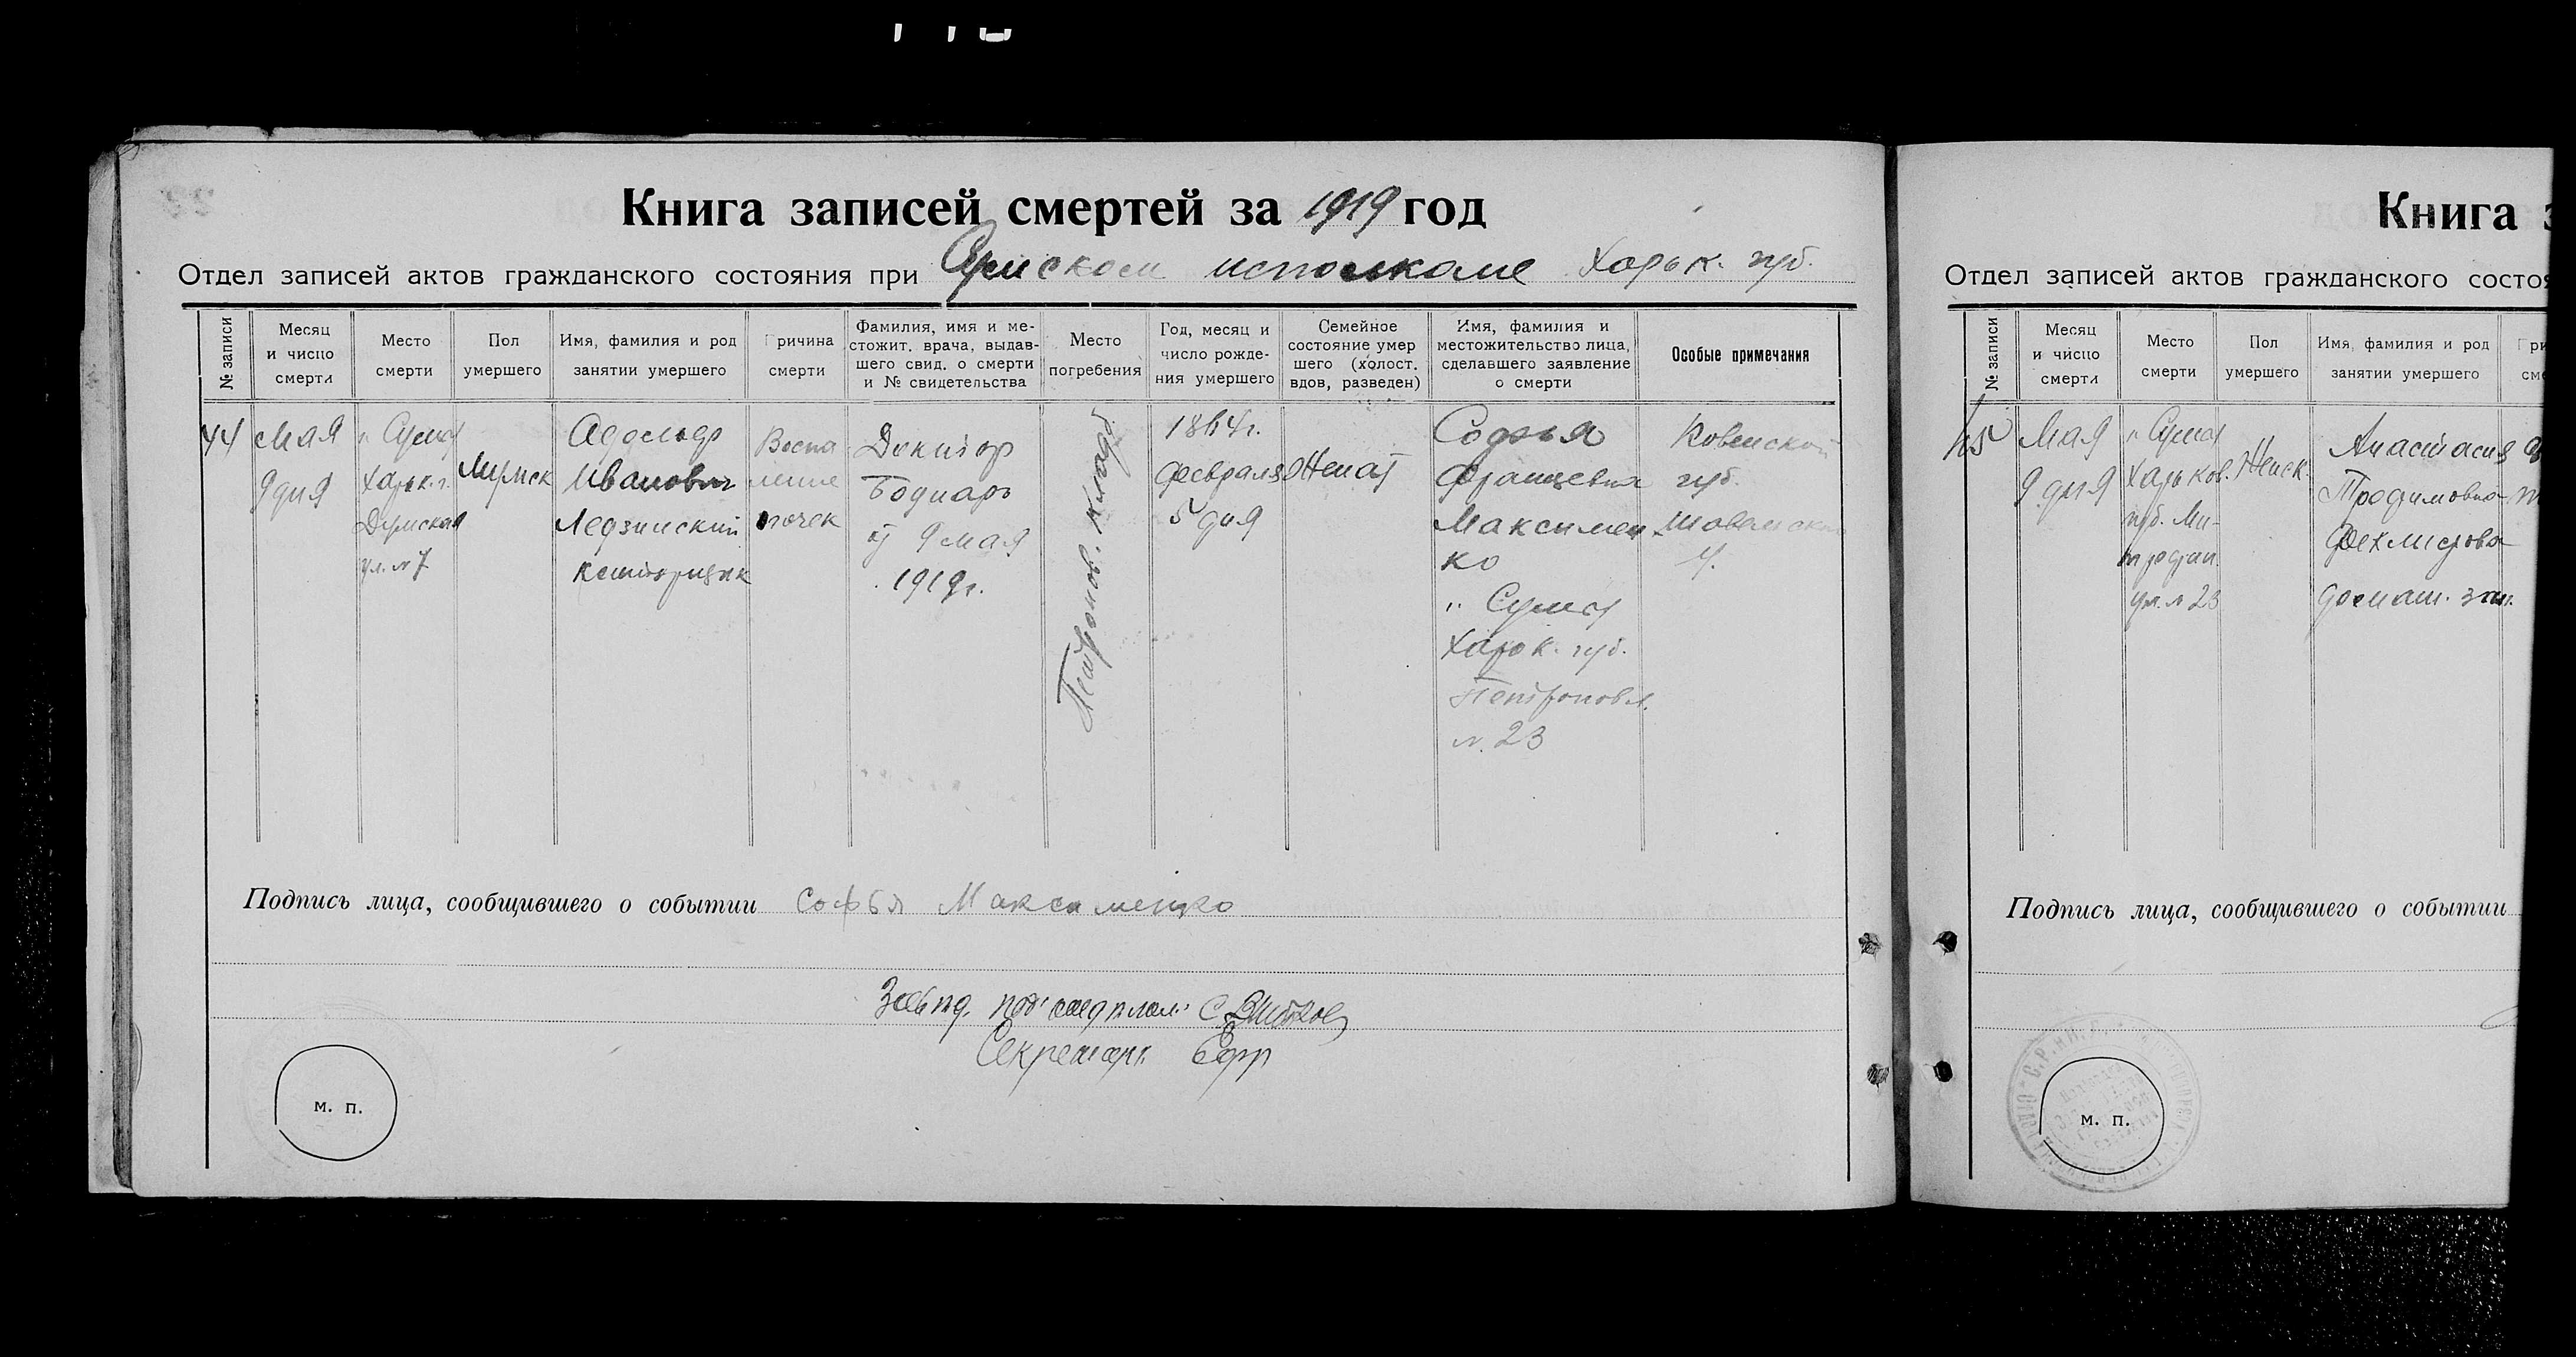 Книга записей смертей за 1919 год
Отдел записей актов гражданского состояния при Сумском исполкоме Харьк. губ.
№ записи
Месяц
и число
смерти
Место
смерти
Пол
умершего
Имя, фамилия и род
занятии умершего
Причина
смерти
Фамилия, имя и ме-
стожит. врача, выдав-
шего свид. о смерти
и № свидетельства
Место
погребения
Год, месяц и
число рожде-
ния умершего
Семейное
состояние умер
шего (холост.
вдов, разведен)
Имя, фамилия и
местожительство лица,
сделавшего заявление
о смерти
Особые примечания
44
Мая
9 дня
г. Сумы
Харьк. г.
Думская
ул. № 7
Мужск
Адольф
Иванович
Ледзинский
конторщик
Воспа
ление
почек
Доктор
Боднарь
9 мая
1919 г.
Петропов. кладб.
1864 г.
февраля
5 дня
Женат
Софья
Францевна
Максимен
ко
г. Сумы
Харьк. губ.
№ 23
Ковенской
губ.
у.
Подпись лица, сообщившего о событии Софья Максименко
Секретарь
м. п.
Книга з
Отдел записей актов гражданского состоя
№ записи
Месяц
и число
смерти
Место
смерти
Пол
умершего
Имя, фамилия и род
занятии умершего
При
сме
45
Мая
9 дня
г. Сумы
Харьков.
губ. Ми-
трофан.
ул. № 23
Женск.
Анастасия
Трофимовна
Феклистова
домаш. зан.
Подпись лица, сообщившего о событии
м. п.